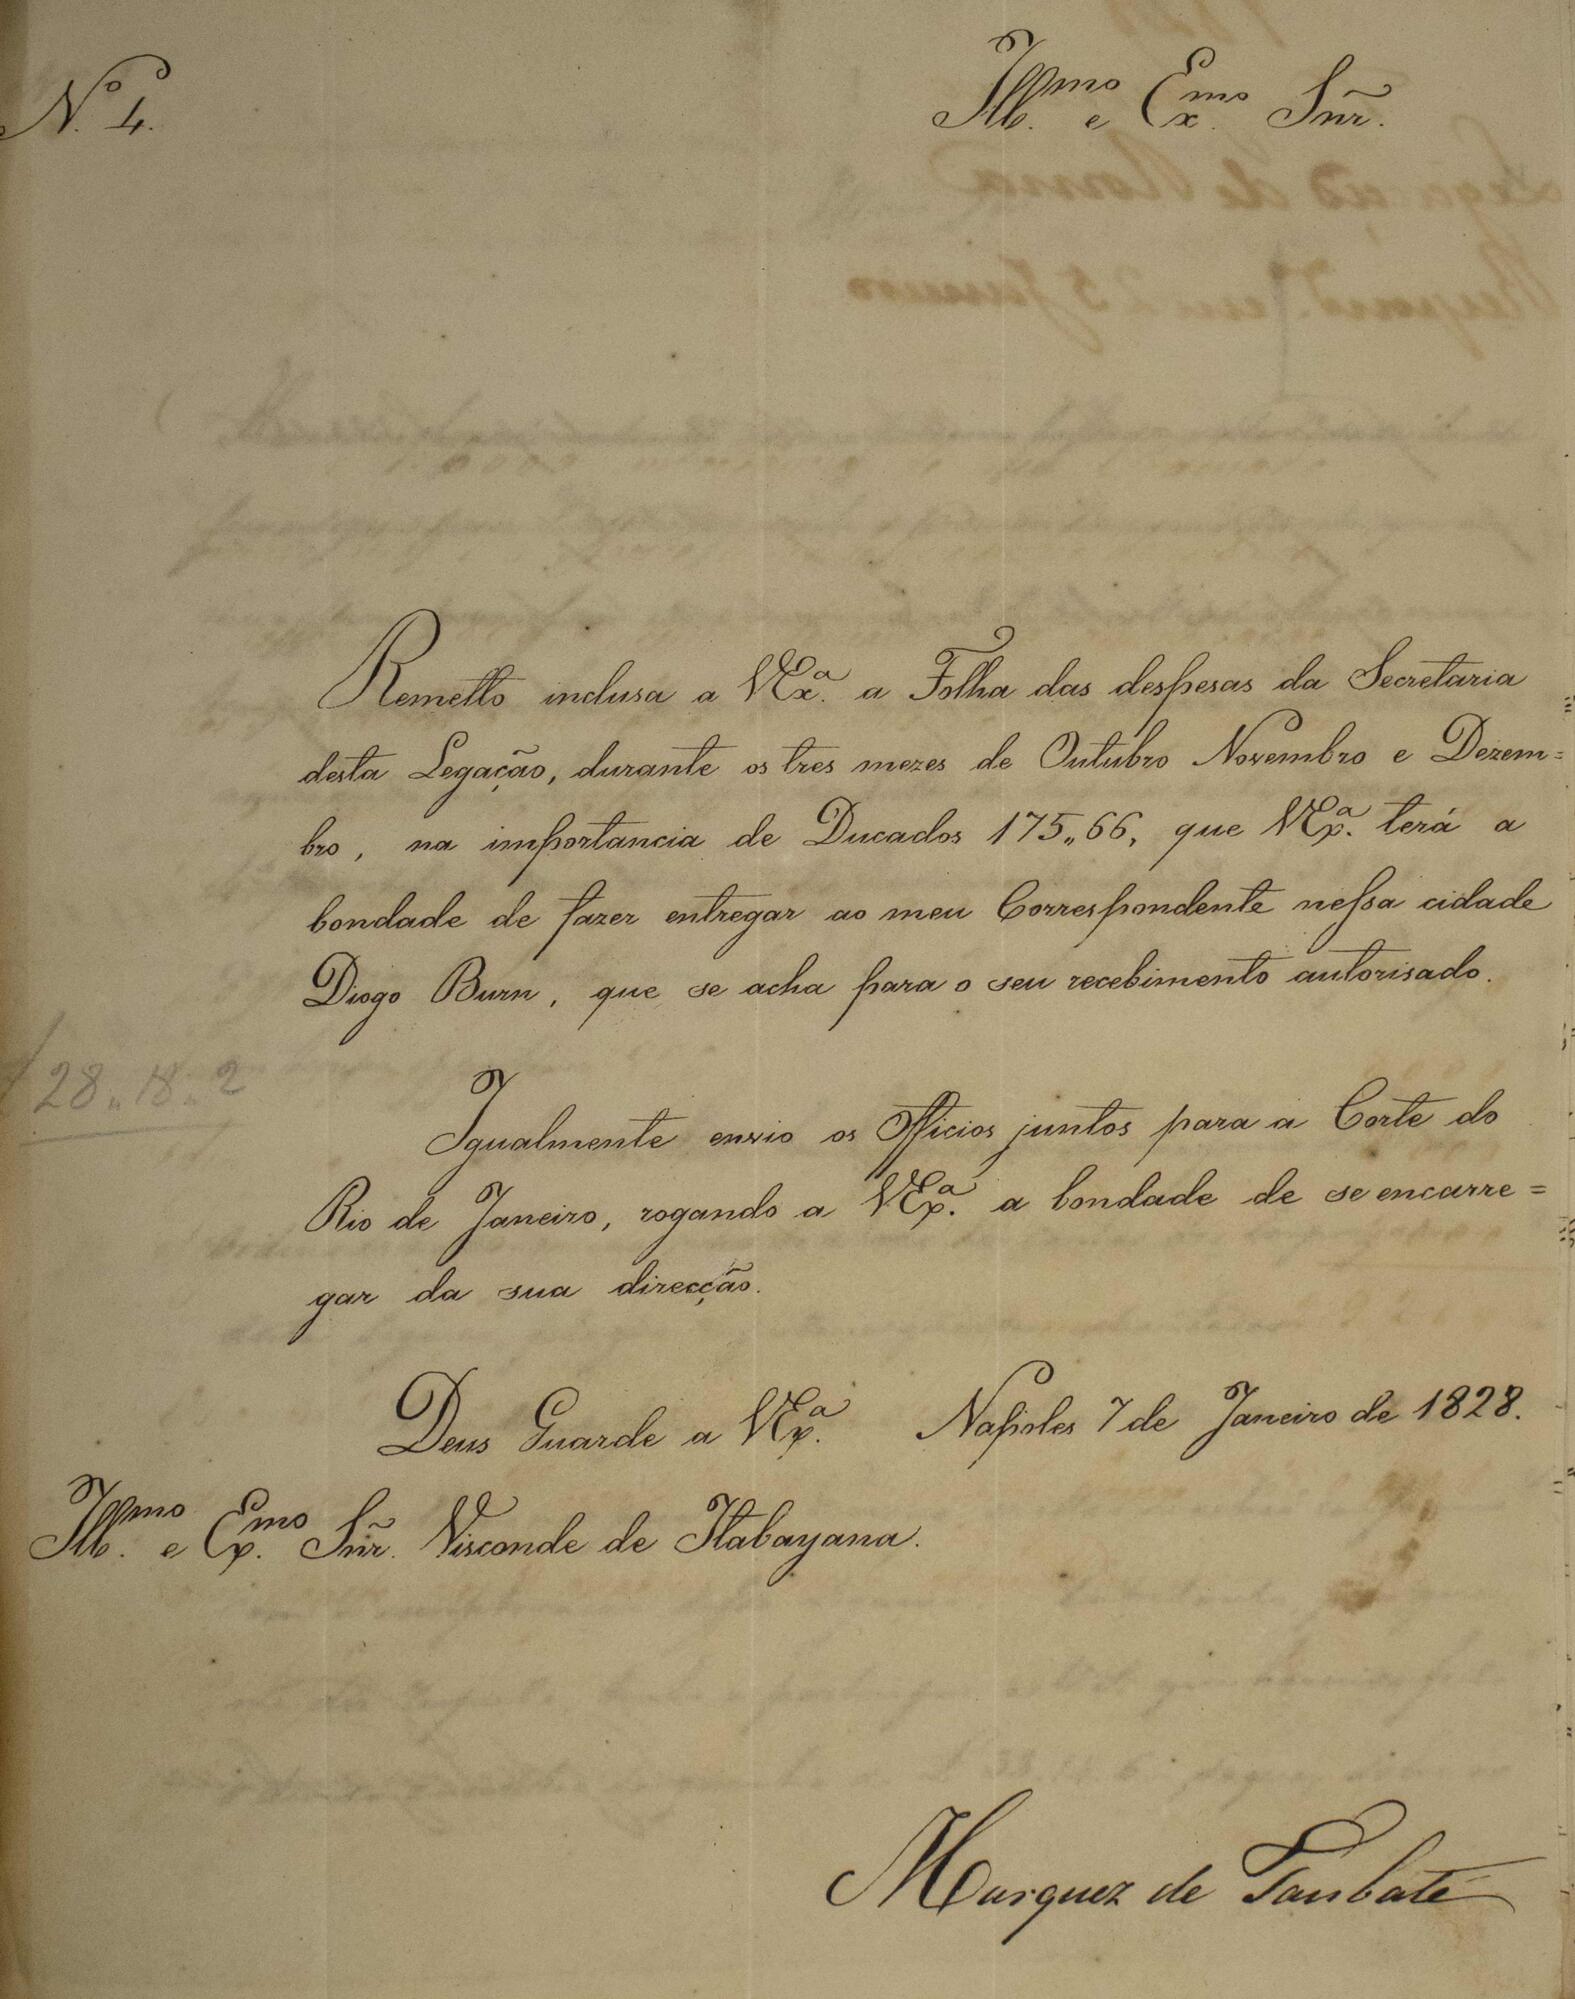 N.º 4.
Ill.mo e Ex.mo Snr̃.
Remetto inclusa a VEx.ª a Folha das despesas da Secretaria
desta Legação, durante os tres mezes de Outubro Novembro e Dezem=
bro, na importancia de Ducados 175,,66, que VEx.ª terá a
bondade de fazer entregar ao meu Correspondente nessa cidade
Diogo Burn, que se acha para o seu recebimento autorisado.
28,,18,,2
Igualmente envio os Officios juntos para a Corte do
Rio de Janeiro, rogando a VEx.ª a bondade de se encarre=
gar da sua direcção.
Deus Guarde a VEx.ª Napoles 7 de Janeiro de 1828.
Ill.mo e Ex.mo Snr̃. Visconde de Itabayana.
Marquez de Taubaté